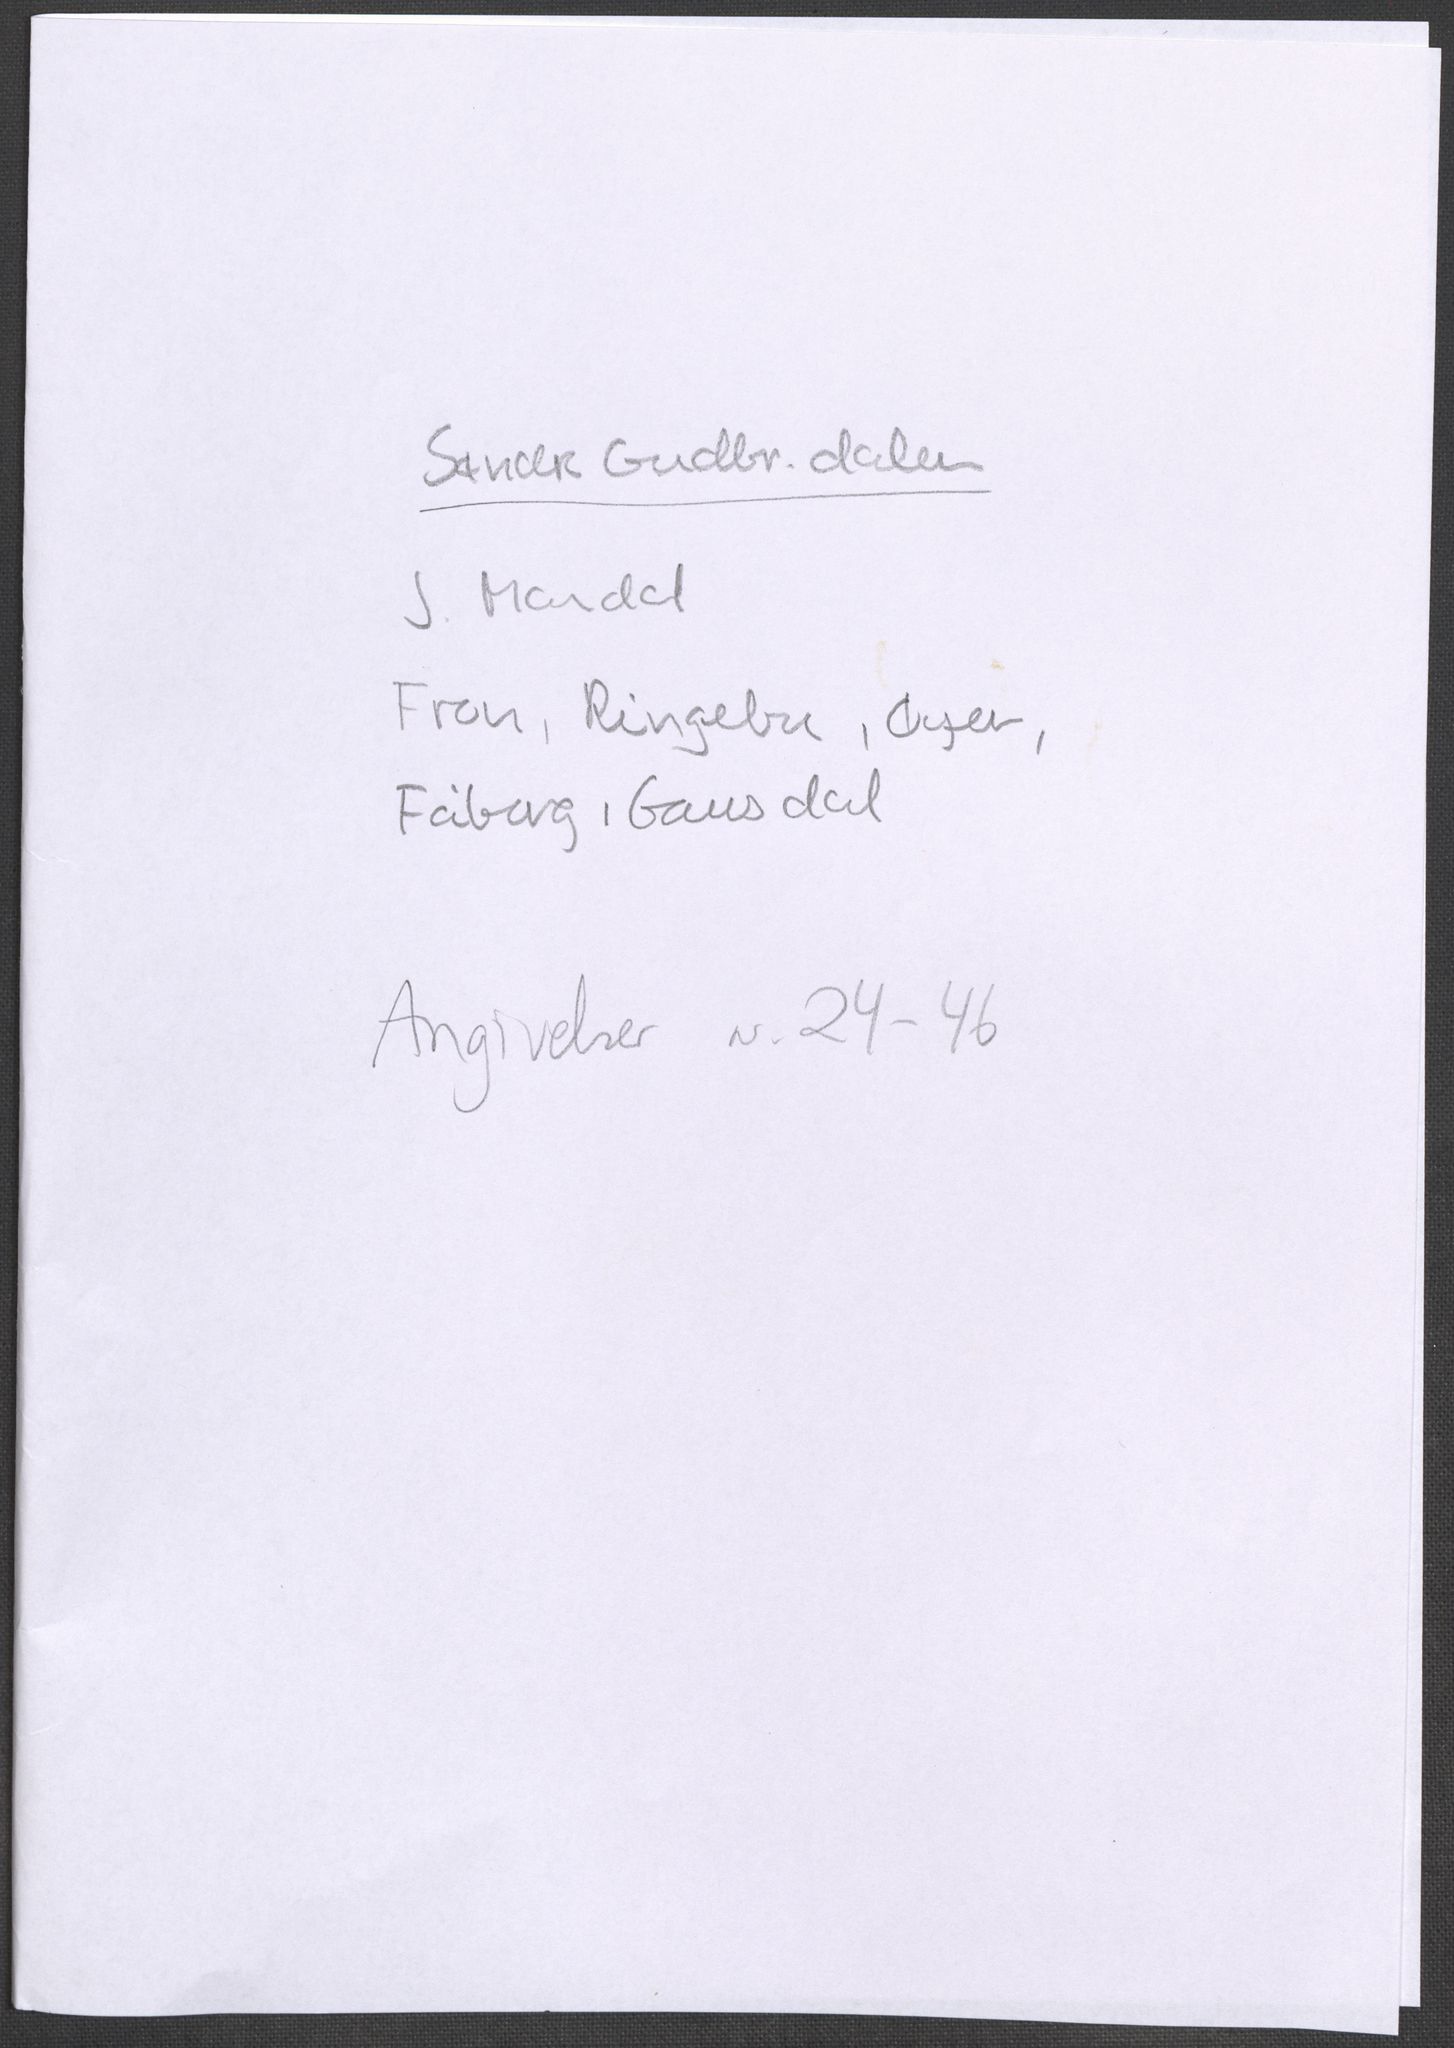 Søndre Gudbr. dalen
J. Mandal
Fron, Ringebu, Øyer,
Fåberg, Gausdal
Angivelser nr. 24-46